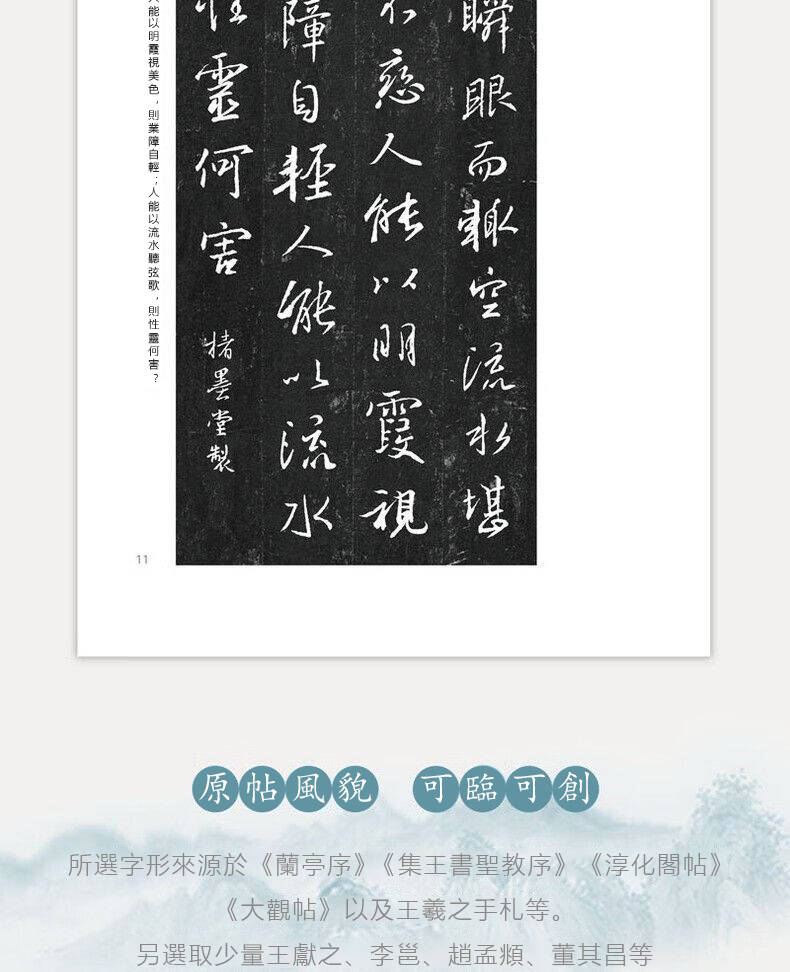 瞬眼而輒空流水堪
不戀人能以明霞視
障自輕人能以流水
性靈何害
楮墨堂製
人能以明霞視美色，則業障自輕；人能以流水聽弦歌，則性靈何害？
11
原帖風貌 可臨可創
所選字形來源於《蘭亭序》《集王書聖教序》《淳化閣帖》
《大觀帖》以及王羲之手札等。
另選取少量王獻之、李邕、趙孟頫、董其昌等